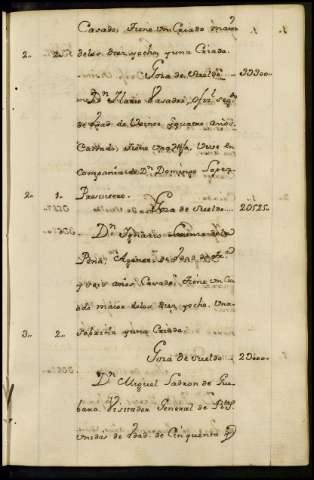 Casado, tiene un Criado maior
2.. 2.. delos diez yocho, yuna Criada.
Goza de sueldo 33300..
Dn. Ylario Pasadre, ofizl. seg.
de edad de Veinte yquatro años
Cassado, tiene una Hija, vive en
Compañia de Dn. Domingo Lopez
2.. 1.. Presvitero.
Goza de sueldo 20525..
Dn. Ygnacio de la
Peña, Agente, de edad de
yseis años, Casado, tiene un Cri
ado maior delos diez yocho, una
3.. 2.. Sobrina yuna Criada.
Goza de sueldo 23000..
Dn. Miguel Ladron de Gue
bara Visitador General de Rtas.
Unidas de edad de Cinquenta y